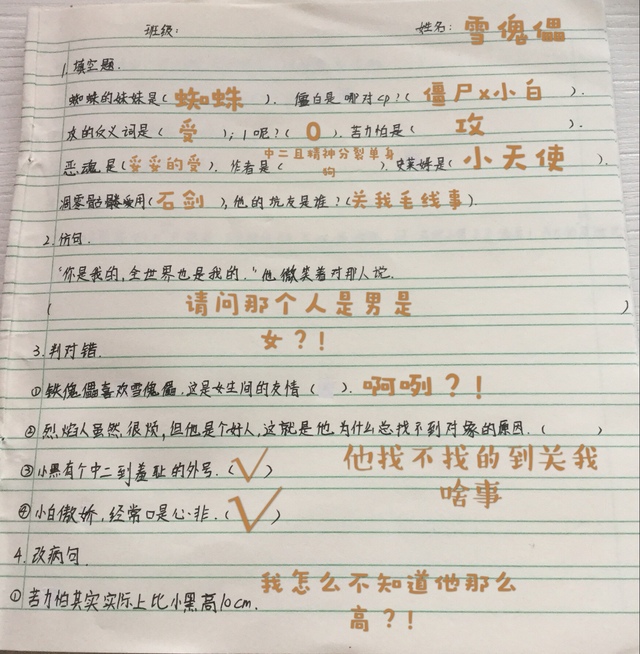 班级: 姓名: 雪傀儡
1.填空题.
蜘蛛的妹妹是(蜘蛛). 僵白是哪对cp?(僵尸x小白).
攻的反义词是(受);1呢?(0).苦力怕是(攻).
恶魂是(妥妥的受).作者是(中二且精神分裂单身狗).史莱姆是(小天使).
凋零骷髅爱用(石剑),他的坑友是谁?(关我毛线事).
2.仿句.
“你是我的,全世界也是我的.”他微笑着对那人说.
(请问那个人是男是女?!)
3.判对错.
①铁傀儡喜欢雪傀儡.这是女生间的友情( ).啊咧?!
②烈焰人虽然很烦,但他是个好人,这就是他为什么总找不到对象的原因.( )
他找不找的到关我啥事
③小黑有个中二到羞耻的外号.(√)
④小白傲娇,经常口是心非.(√)
4.改病句.
①苦力怕其实实际上比小黑高10cm.
我怎么不知道他那么高?!